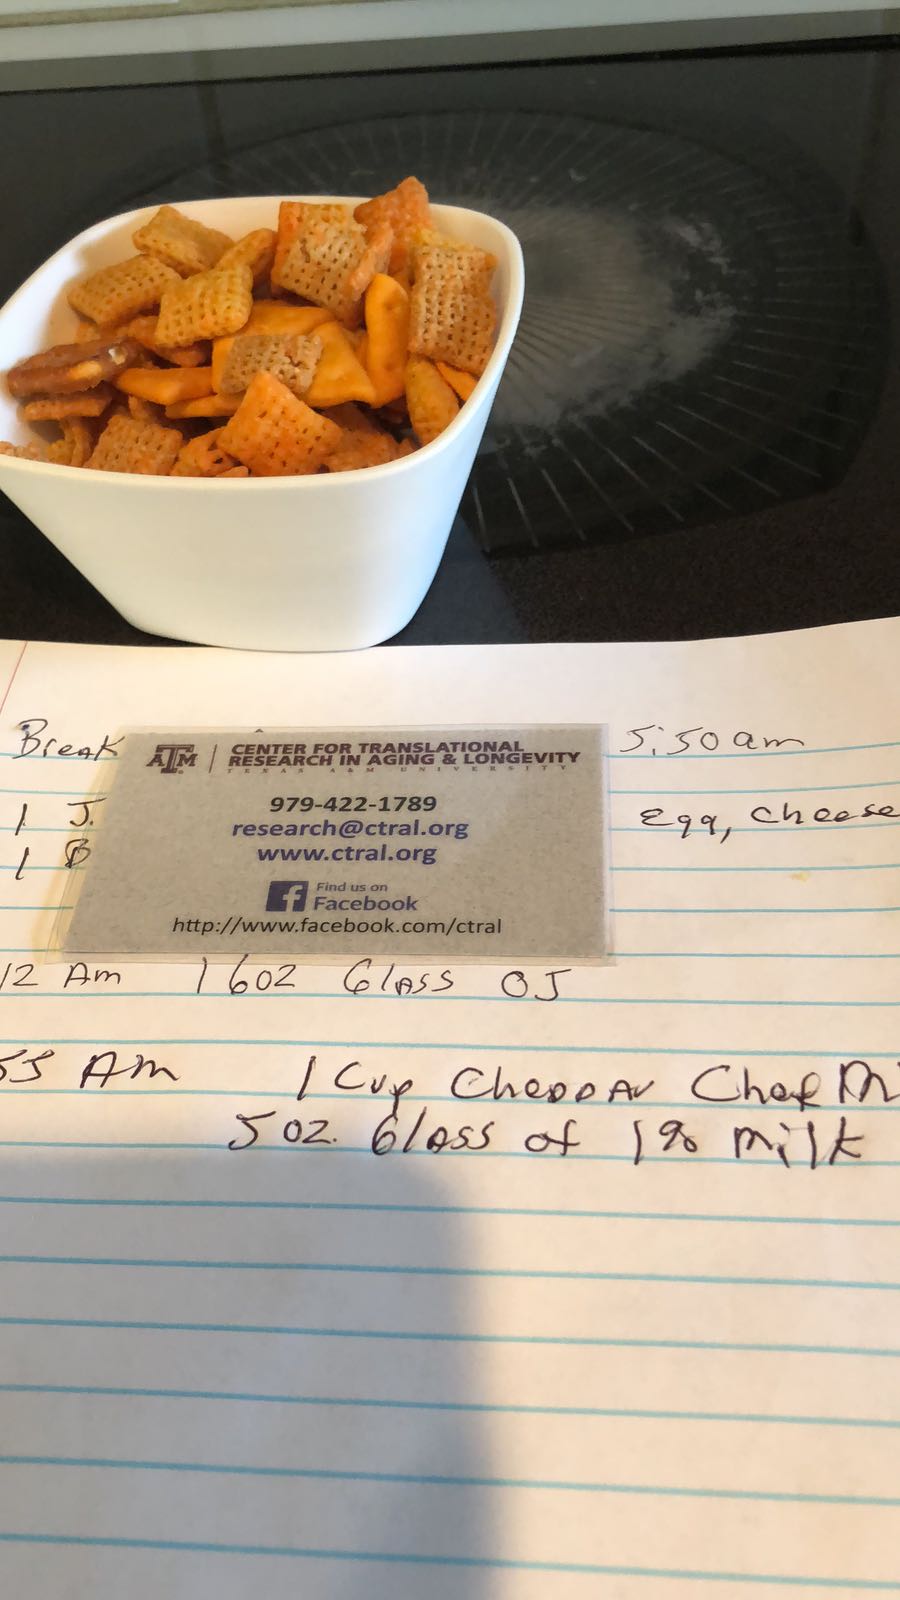 Break 5:50am
ATM | CENTER FOR TRANSLATIONAL
RESEARCH IN AGING & LONGEVITY
TEXAS A&M UNIVERSITY
979-422-1789
research@ctral.org
www.ctral.org
Find us on
Facebook
http://www.facebook.com/ctral
1 J. Egg, Cheese
1 B
12 Am 1 6oz Glass OJ
55 Am 1 Cup Cheddar Chex Mi
5 oz. Glass of 1% Milk